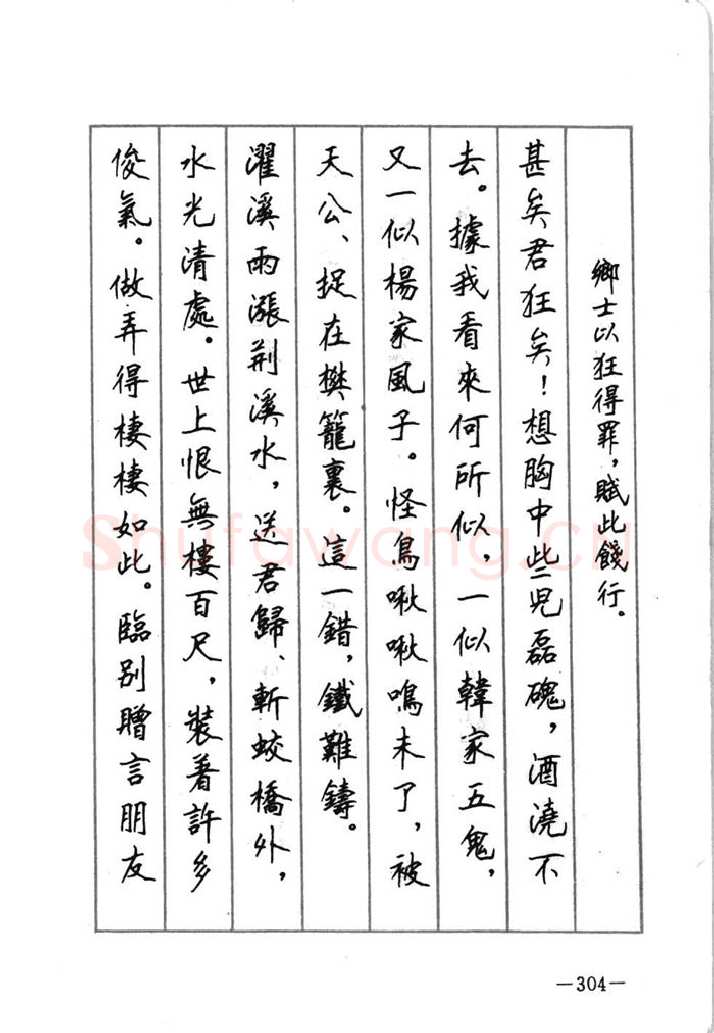 鄉士以狂得罪，賦此餞行。
甚矣君狂矣！想胸中些兒磊磈，酒澆不
去。據我看來何所似，一似韓家五鬼，
又一似楊家風子。怪鳥啾啾鳴未了，被
天公、捉在樊籠裏。這一錯，鐵難鑄。
濯溪雨漲荆溪水，送君歸、斬蛟橋外，
水光清處。世上恨無樓百尺，裝着許多
俊氣。做弄得棲棲如此。臨別贈言朋友
—304—
Shufawang.cn